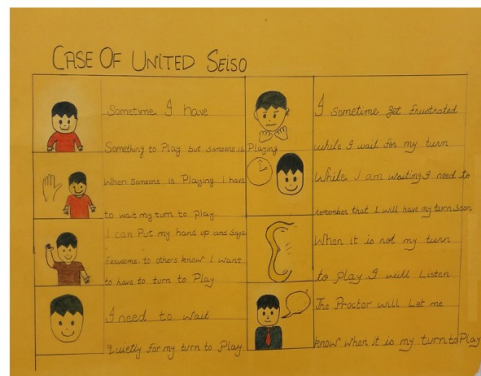 CASE OF UNITED SEISO
Sometime I have
Something to Play but someone is Playing
When Someone is Playing I have
to wait my turn to Play
I can Put my hand up and Says
to others know I want
to have to turn to Play
I need to wait
Quietly for my turn to Play
I sometime get frustrated
while I wait for my turn
While I am waiting I need to
remember that I will have my turn soon
When it is not my turn
to play I will Listen
The Proctor will Let me
know when it is my turn to Play